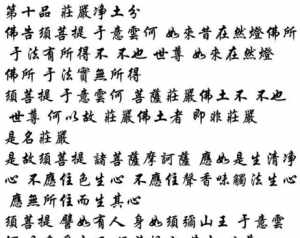 第十品 莊嚴凈土分
佛告須菩提 于意雲何 如來昔在然燈佛所
于法有所得不 不也 世尊 如來在然燈
佛所 于法實無所得
須菩提 于意雲何 菩薩莊嚴佛土不 不也
世尊 何以故 莊嚴佛土者 即非莊嚴
是名莊嚴
是故須菩提 諸菩薩摩訶薩 應如是生清凈
心 不應住色生心 不應住聲香味觸法生心
應無所住而生其心
須菩提 譬如有人 身如須彌山王 于意雲